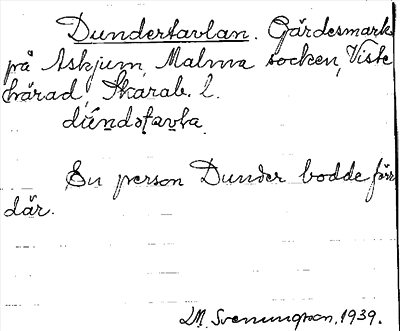 Dundertavlan. Gärdesmark
på Askjum, Malma socken, Viste
härad, Skarab. l.
dúndətavla.
En person Dunder bodde förr
där.
LM. Svenungsson, 1939.